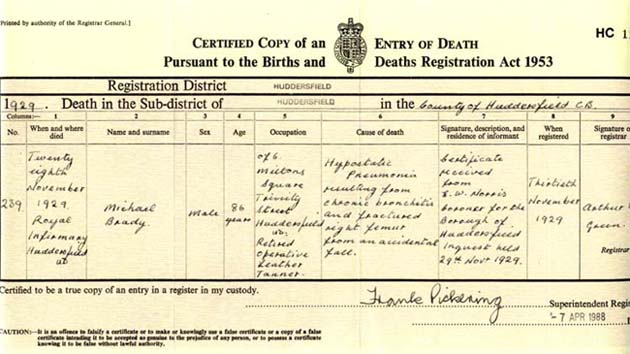 [Printed by authority of the Registrar General.]
HC 1
CERTIFIED COPY of an ENTRY OF DEATH
Pursuant to the Births and Deaths Registration Act 1953
Registration District HUDDERSFIELD
1929. Death in the Sub-district of HUDDERSFIELD in the County of Huddersfield C.B.
Columns:— 1 2 3 4 5 6 7 8 9
No. When and where died Name and surname Sex Age Occupation Cause of death Signature, description, and residence of informant When registered Signature of registrar
239
Twenty
eighth
November
1929.
Royal
Infirmary
Huddersfield
Michael
Brady.
Male
86
years
of 6
Miltons
Square
Trinity
Street
Huddersfield
Retired
Operative
Leather
Tanner.
Hypostatic
Pneumonia
resulting from
chronic bronchitis
and fractured
right femur
from an accidental
fall.
Certificate
received
from
E. W. Norris
Coroner for the
Borough of
Huddersfield
Inquest held
29th Novr 1929.
Thirtieth
November
1929
Arthur
Green.
Registrar
Certified to be a true copy of an entry in a register in my custody.
Frank Pickering Superintendent Reg
-7 APR 1988
CAUTION:—It is an offence to falsify a certificate or to make or knowingly use a false certificate or a copy of a false
certificate intending it to be accepted as genuine to the prejudice of any person, or to possess a certificate
knowing it to be false without lawful authority.